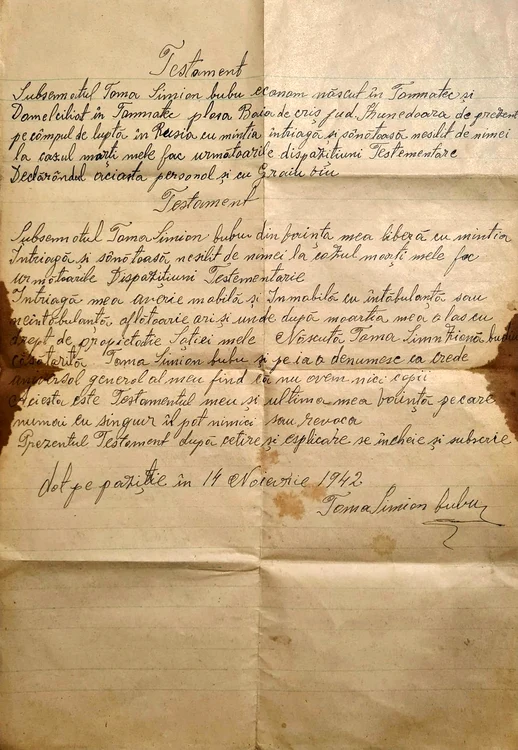 Testament
Subsemnatul Toma Simion bubu econom născut în Tomnatec si
Domeiciliat în Tomnatec plasa Baia de criș jud. Hunedoara de prezent
pe cômpul de luptă în Rusia cu mintia întriagă și sônotoasă nesilit de nimei
la cazul morti mele fac urmôtoarile dispozițiuni Testementare
Declarôndul aciasta personol și cu Graiu viu
Testament
Subsemnatul Toma Simion bubu din voința mea liberă cu mintia
Intriagă și sônôtoasă nesilit de nimei la cazul morți mele fac
urmôtoarile Dispozițiuni Testementarie
Intriagă mea averie mobilă și Immobilă cu intôbulantă sau
neintôbulantă aflôtoarie ori și unde după moartia mea o las cu
drept de propietatie Soției mele Nôscută Toma Simzionă bubu
côsotorită Toma Simion bubu și pe ia o denumesc ca erede
universol general al meu fiind că nu ovem nici copii
Aciesta este Testamentul meu și ultima mea voință pe care
numai eu singur îl pot nimici sau revoca
Prezentul Testament după cetire și esplicare se încheie și subscrie
Dat pe poziție în 14 Noiemvrie 1942
Toma Simion bubu